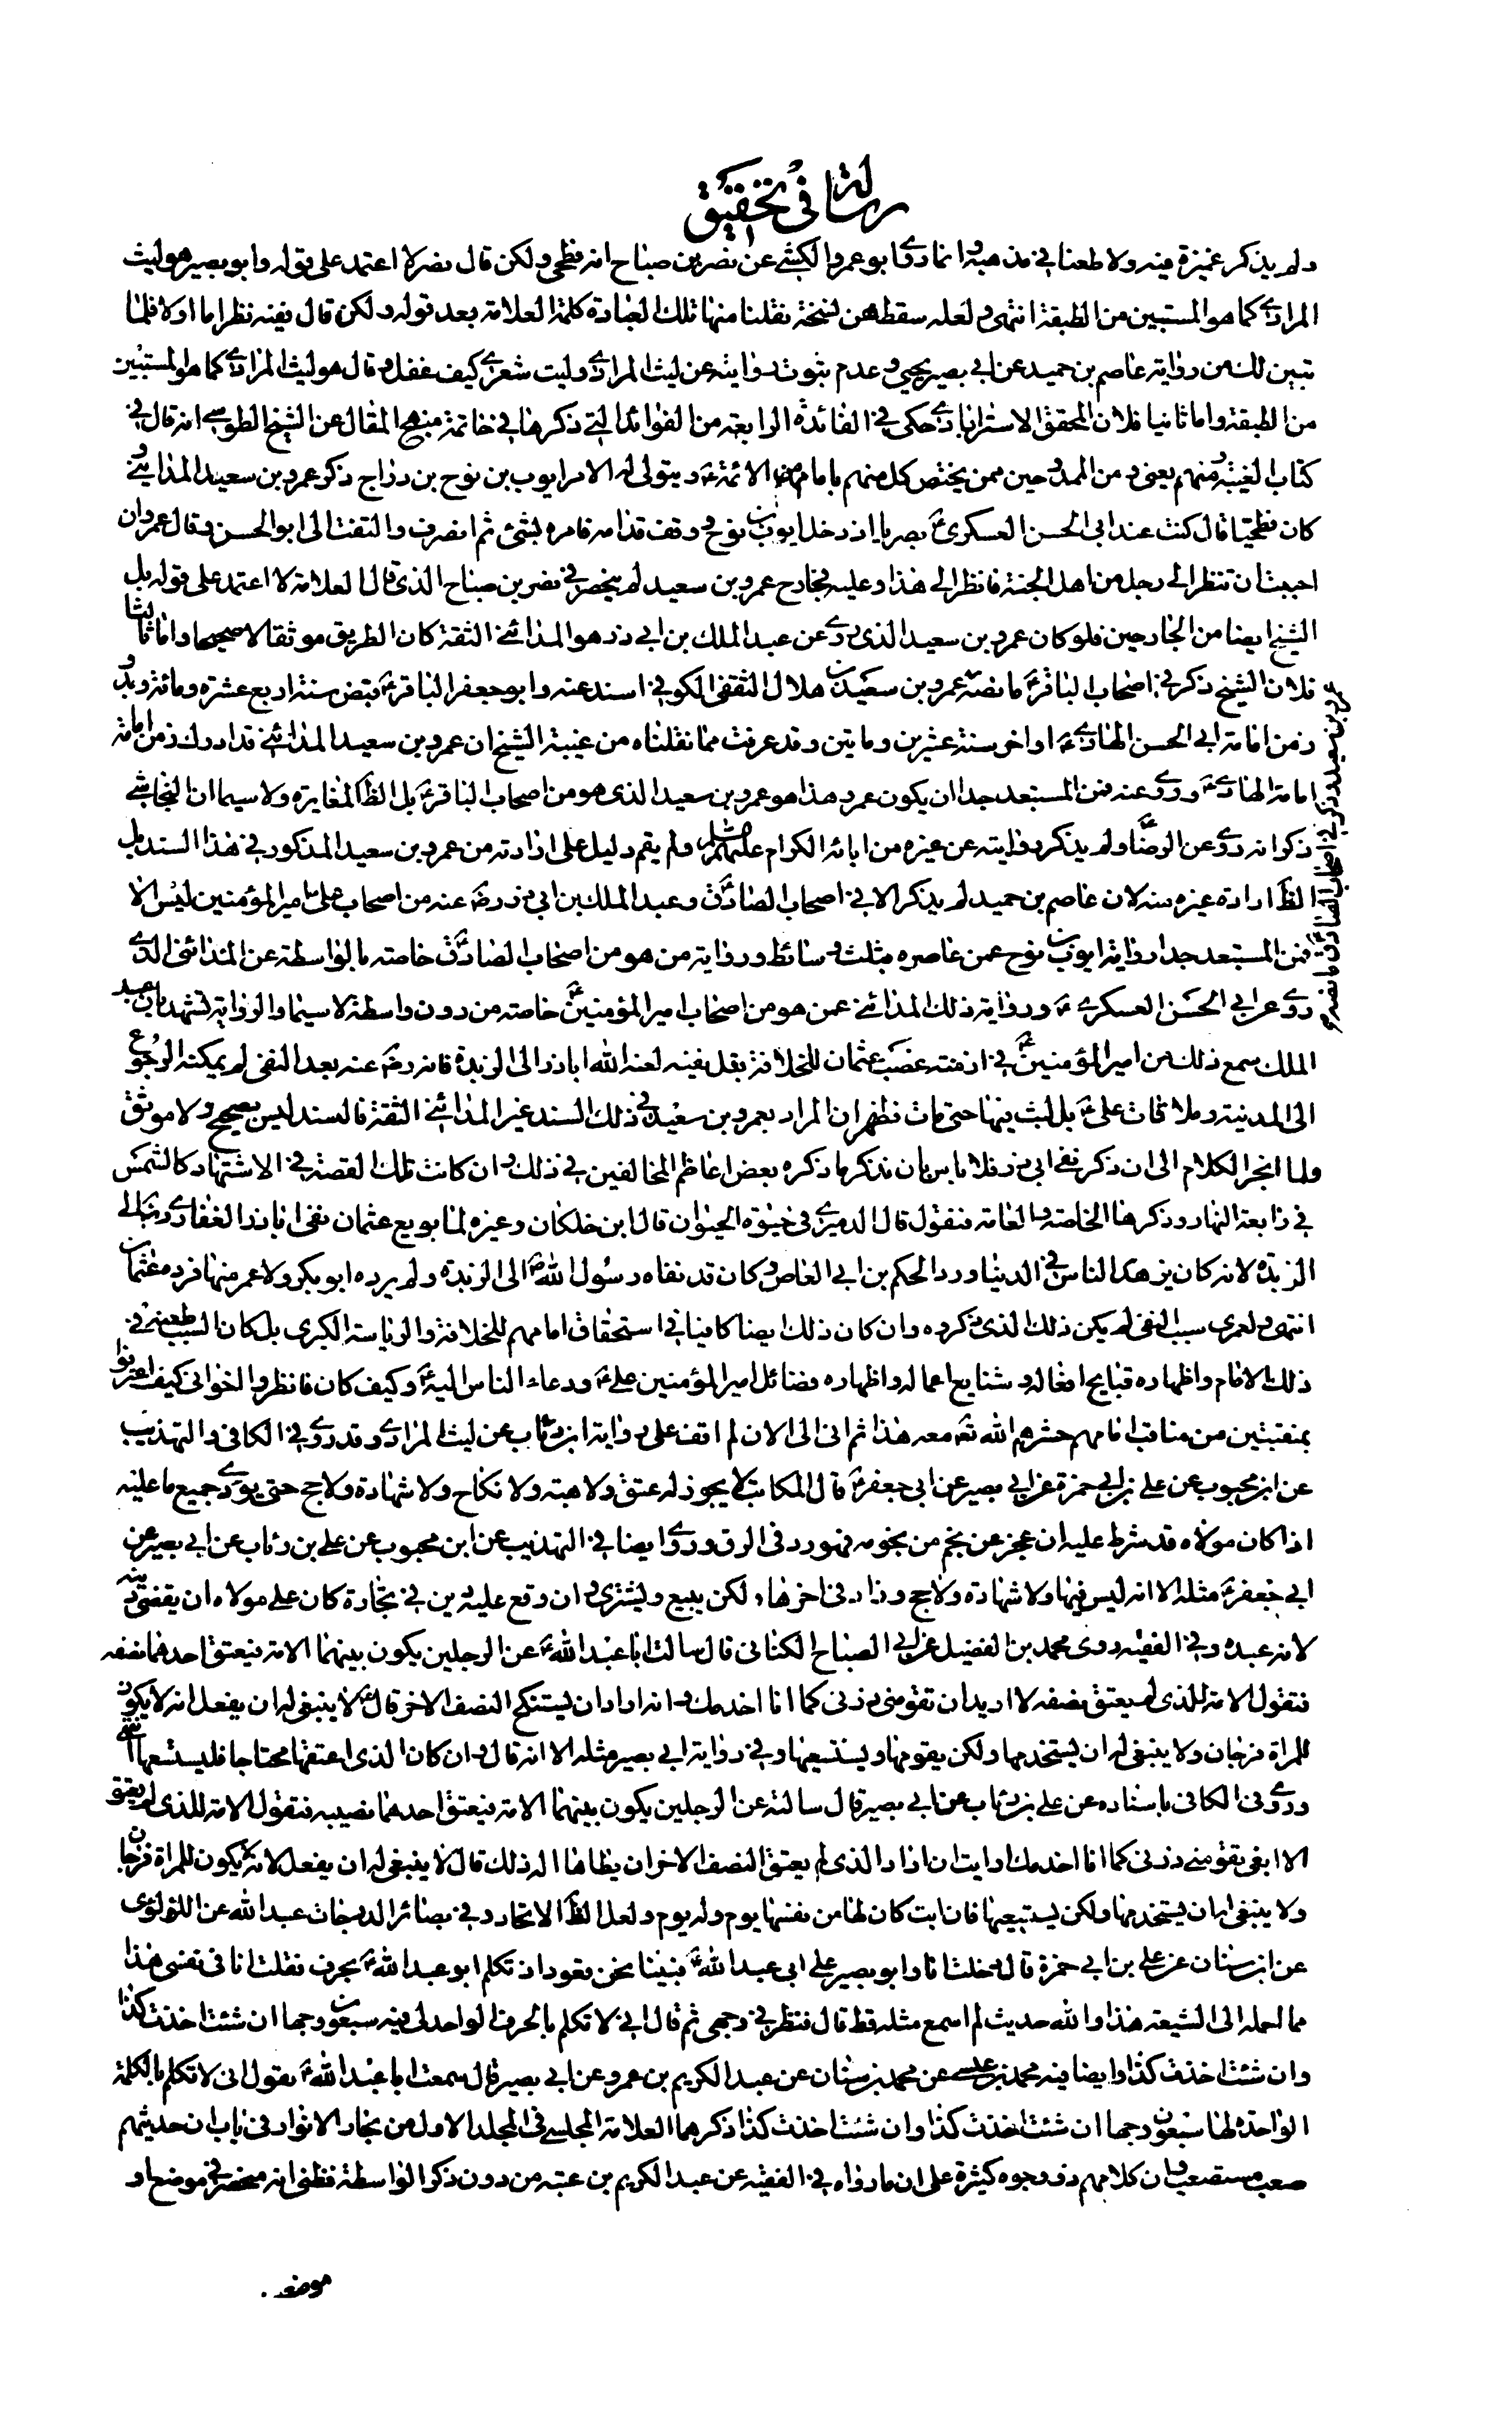 رسالة في تحقيق
ولم يذكر غميزة فيه ولا طعنا في مذهبه وانما روى ابو عمرو الكشي عن نصر بن صباح انه فطحي ولكن قال نصر لا اعتمد على قوله وابو بصير هو ليث
المرادي كما هو المستبين من الطبقة انتهى ولعله سقط من نسخة نقلنا منها تلك العبارة كلمة العلامة بعد قوله ولكن قال ففيه نظر اما اولا فلما
تبين لك من رواية عاصم بن حميد عن ابي بصير يحيى وعدم ثبوت روايته عن ليث المرادي وليت شعري كيف غفل وقال هو ليث المرادي كما هو المستبين
من الطبقة واما ثانيا فلان المحقق الاسترابادي حكى في الفائدة الرابعة من الفوائد التي ذكرها في خاتمة منهج المقال عن الشيخ الطوسي انه قال في
كتاب الغيبة ومنهم يعني ومن الممدوحين ممن يختص كل منهم بامام من الائمة ع ويتولى له الامر ايوب بن نوح بن دراج ذكر عمرو بن سعيد المدائني و
كان فطحيا قال كنت عند ابي الحسن العسكري ع بصريا اذ دخل ايوب بن نوح ووقف قدامه فامره بشئ ثم انصرف والتفت الى ابو الحسن وقال يا عمرو ان
احببت ان تنظر الى رجل من اهل الجنة فانظر الى هذا وعليه فجارح عمرو بن سعيد لم ينحصر في نصر بن صباح الذي قال العلامة لا اعتمد على قوله بل
الشيخ ايضا من الجارحين فلو كان عمرو بن سعيد الذي روى عن عبد الملك بن ابي ذر هو المدائني الثقة كان الطريق موثقا لا صحيحا واما ثالثا
فلان الشيخ ذكر في اصحاب الباقر ع ما نصه عمرو بن سعيد بن هلال الثقفي الكوفي اسند عنه وابو جعفر الباقر ع قبض سنة اربع عشرة ومائة وبدو
زمن امامة ابي الحسن الهادي ع اواخر سنة عشرين وماتين وقد عرفت مما نقلناه من غيبة الشيخ ان عمرو بن سعيد المدائني قد ادرك زمن امامة
امامة الهادي ع وروى عنه فمن المستبعد جدا ان يكون عمرو هذا هو عمرو بن سعيد الذي هو من اصحاب الباقر ع بل الظ المغايرة ولا سيما ان النجاشي
ذكر انه روى عن الرضا ع ولم يذكر روايته عن غيره من ابائه الكرام عليهم السلم ولم يقم دليل على ارادته من عمرو بن سعيد المذكور في هذا السند بل
الظ ارادة غيره منه لان عاصم بن حميد لم يذكر الا في اصحاب الصادق ع وعبد الملك بن ابي ذر رضه عنه من اصحاب على امير المؤمنين ليس الا
فمن المستبعد جدا رواية ايوب بن نوح عمن عاصره بثلث وسائط ورواية من هو من اصحاب الصادق ع خاصة بالواسطة عن المدائني الذي
روى عن ابي الحسن العسكري ع ورواية ذلك المدائني عمن هو من اصحاب امير المؤمنين ع خاصة من دون واسطة لا سيما والرواية تشهد بان عبد
الملك سمع ذلك من امير المؤمنين ع في ازمنة غصب عثمان للخلافة بقل نفيه لعنه الله اباذر الى الربذة فانه رضه عنه بعد النفي لم يمكنه الرجوع
الى المدينة وملاقات علي ع بل لبث بها حتى مات فظهر ان المراد بعمرو بن سعيد في ذلك السند غير المدائني الثقة فالسند ليس بصحيح ولا موثق
ولما انجر الكلام الى ان ذكر نفي ابي ذر فلا باس بان نذكر ما ذكره بعض اعاظم المخالفين في ذلك وان كانت تلك القصة في الاشتهار كالشمس
في رابعة النهار وذكرها الخاصة والعامة فنقول قال الدميري في حيوة الحيوان قال ابن خلكان وغيره لما بويع عثمان نفى اباذر الغفاري رض الى
الربذة لانه كان يزهد الناس في الدنيا ورد الحكم بن ابي العاص وكان قد نفاه رسول الله ص الى الربذة ولم يرده ابو بكر ولا عمر منها فرده عثمان
انتهى ولعمري سبب النفي لم يكن ذلك الذي ذكروه وان كان ذلك ايضا كافيا في استحقاق امامهم للخلافة والرياسة الكبرى بل كان السبب طعنه في
ذلك الامام واظهاره قبايح افعاله وشنايع اعماله واظهاره فضائل امير المؤمنين علي ع ودعاء الناس اليه ع وكيف كان فانظروا اخواني كيف اعترفوا
بمنقبتين من مناقب امامهم حشرهم الله تع معه هذا ثم اني الى الان لم اقف على رواية ابن رئاب عن ليث المرادي وقد روى في الكافي والتهذيب
عن ابن محبوب عن علي بن ابي حمزة عن ابي بصير عن ابي جعفر ع قال المكاتب لا يجوز له عتق ولا هبة ولا نكاح ولا شهادة ولا حج حتى يؤدي جميع ما عليه
اذا كان مولاه قد شرط عليه ان عجز عن نجم من نجومه فهو رد في الرق وروى ايضا في التهذيب عن ابن محبوب عن علي بن رئاب عن ابي بصير عن
ابي جعفر ع مثله الا انه ليس فيها ولا شهادة ولا حج وزاد في اخرها ولكن يبيع ويشتري وان وقع عليه دين في تجارة كان على مولاه ان يقضي دينه
لانه عبده وفي الفقيه روى محمد بن الفضيل عن ابي الصباح الكناني قال سالت ابا عبد الله ع عن الرجلين يكون بينهما الامة فيعتق احدهما نصفه
فتقول الامة للذي لم يعتق نصفه لا اريد ان تقومني ذرني كما انا اخدمك وانه اراد ان يستنكح النصف الاخر قال ع لا ينبغي له ان يفعل انه لا يكون
للمراة فرجان ولا ينبغي له ان يستخدمها ولكن يقومها ويستسعيها وفي رواية ابي بصير مثله الا انه قال وان كان الذي اعتقها محتاجا فليستسعها انتهى
وروى في الكافي باسناده عن علي بن رئاب عن ابي بصير قال سالته عن الرجلين يكون بينهما الامة فيعتق احدهما نصيبه فتقول الامة للذي لم يعتق
لا ابغى تقومني ذرني كما انا اخدمك ارايت ان اراد الذي لم يعتق النصف الاخر ان يطاها اله ذلك قال لا ينبغي له ان يفعل لانه لا يكون للمراة فرجان
ولا ينبغي له ان يستخدمها ولكن يستسعيها فان ابت كان لها من نفسها يوم وله يوم ولعل الظ الاتحاد وفي بصائر الدرجات عبد الله عن اللؤلؤي
عن ابن سنان عن علي بن ابي حمزة قال دخلت انا وابو بصير على ابي عبد الله ع فبينا نحن قعود اذ تكلم ابو عبد الله ع بحرف فقلت انا في نفسي هذا
مما احمله الى الشيعة هذا والله حديث لم اسمع مثله قط قال فنظر في وجهي ثم قال اني لا تكلم بالحرف الواحد لي فيه سبعون وجها ان شئت اخذت كذا
وان شئت اخذت كذا وايضا فيه محمد بن عيسى عن محمد بن سنان عن عبد الكريم بن عمرو عن ابي بصير قال سمعت ابا عبد الله ع يقول اني لا تكلم بالكلمة
الواحدة لها سبعون وجها ان شئت اخذت كذا وان شئت اخذت كذا ذكرهما العلامة المجلسي في المجلد الاول من بحار الانوار في باب ان حديثهم
صعب مستصعب وان كلامهم ذو وجوه كثيرة على ان ما رواه في الفقيه عن عبد الكريم بن عتبة من دون ذكر الواسطة فظني انه منحصر في موضع او
موضعه
عمرو بن سعيد ذكر في اصحاب الصادق ع ما نصه